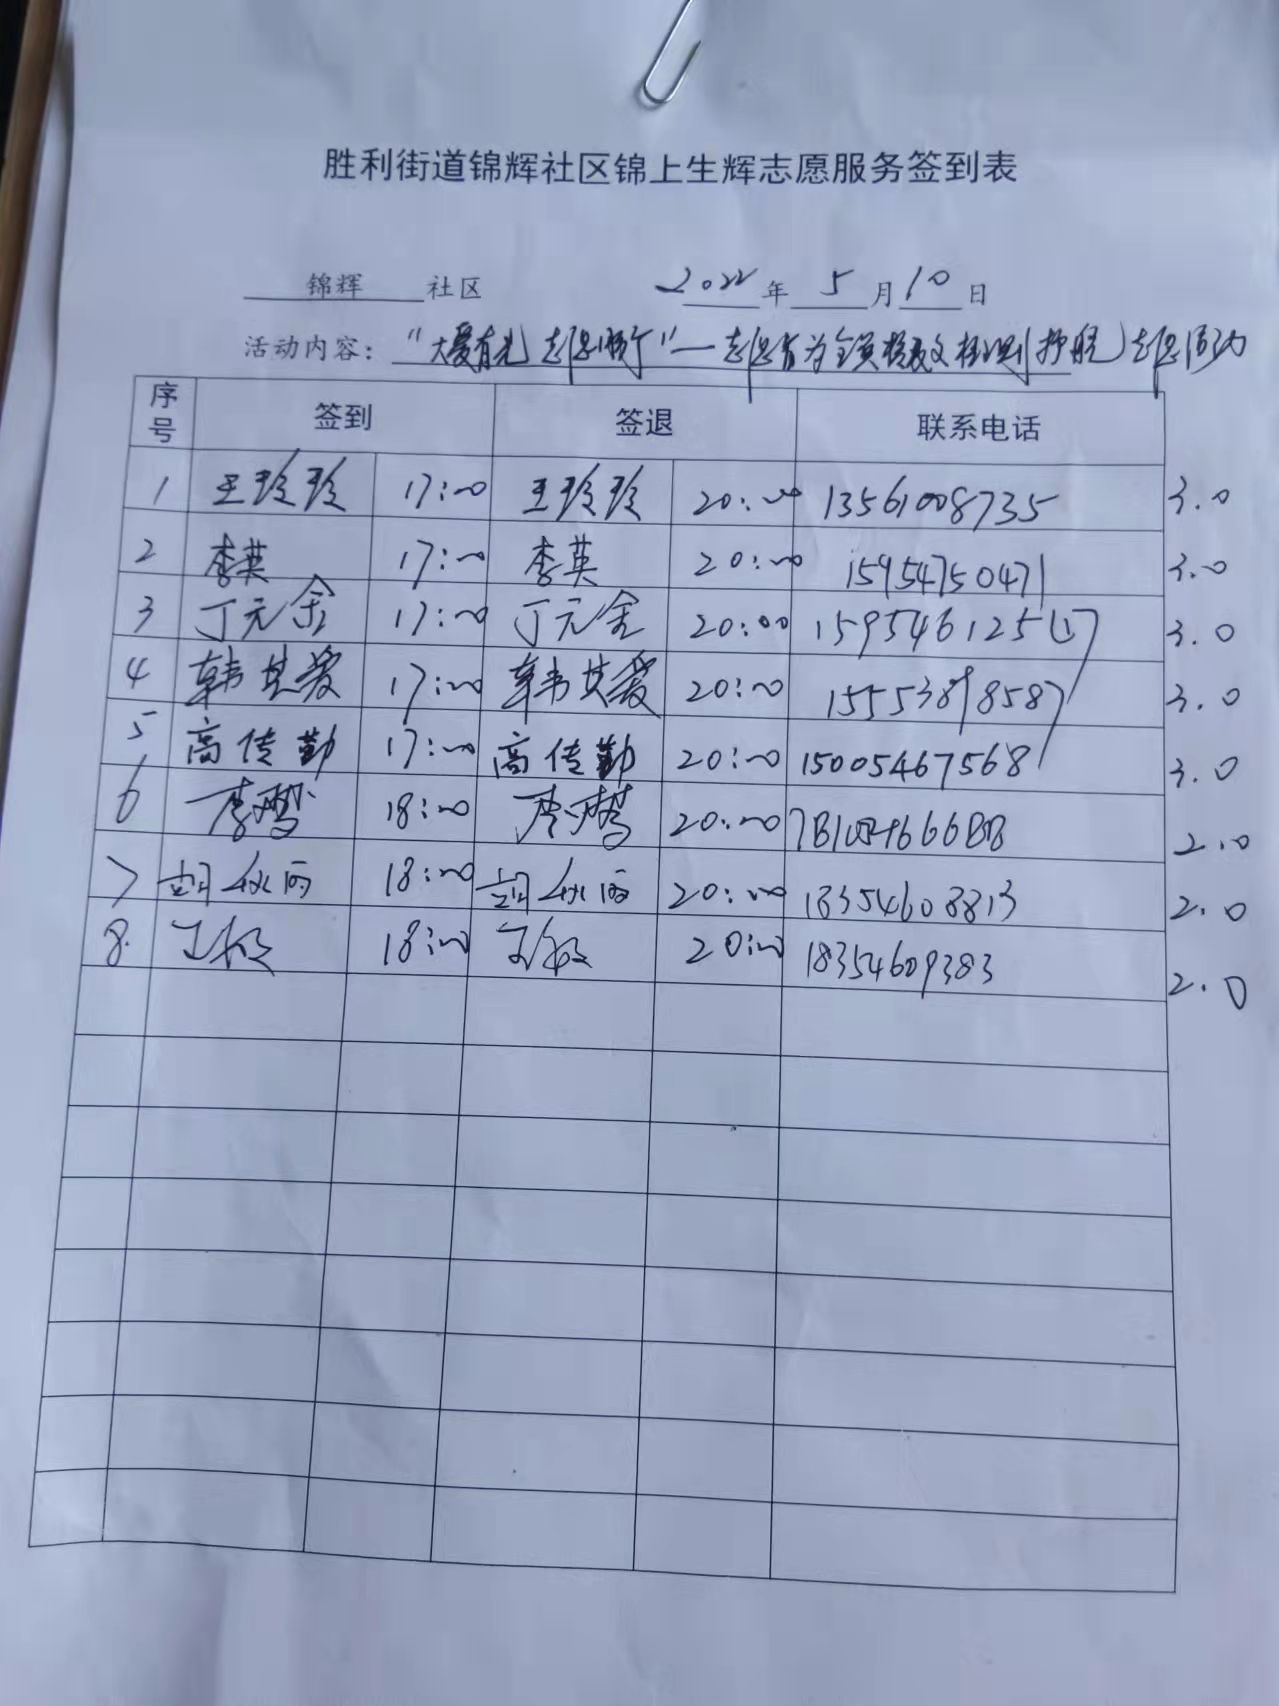 胜利街道锦辉社区锦上生辉志愿服务签到表
锦辉 社区 2022 年 5 月 10 日
活动内容： “大爱有光 志愿 ”—志愿者为全员核酸检测护航 志愿活动
序号 签到 签退 联系电话
1 王玲玲 17:00 王玲玲 20:00 13561008735 3.0
2 李英 17:00 李英 20:00 15954750471 3.0
3 丁元金 17:00 丁元金 20:00 3.0
4 韩其爱 17:00 韩其爱 20:00 15553898587 3.0
5 高传勤 17:00 高传勤 20:00 15005467568 3.0
6 18:00 20:00 2.0
7 胡秋雨 18:00 胡秋雨 20:00 18354608813 2.0
8. 王敏 18:00 王敏 20:00 18354609383 2.0